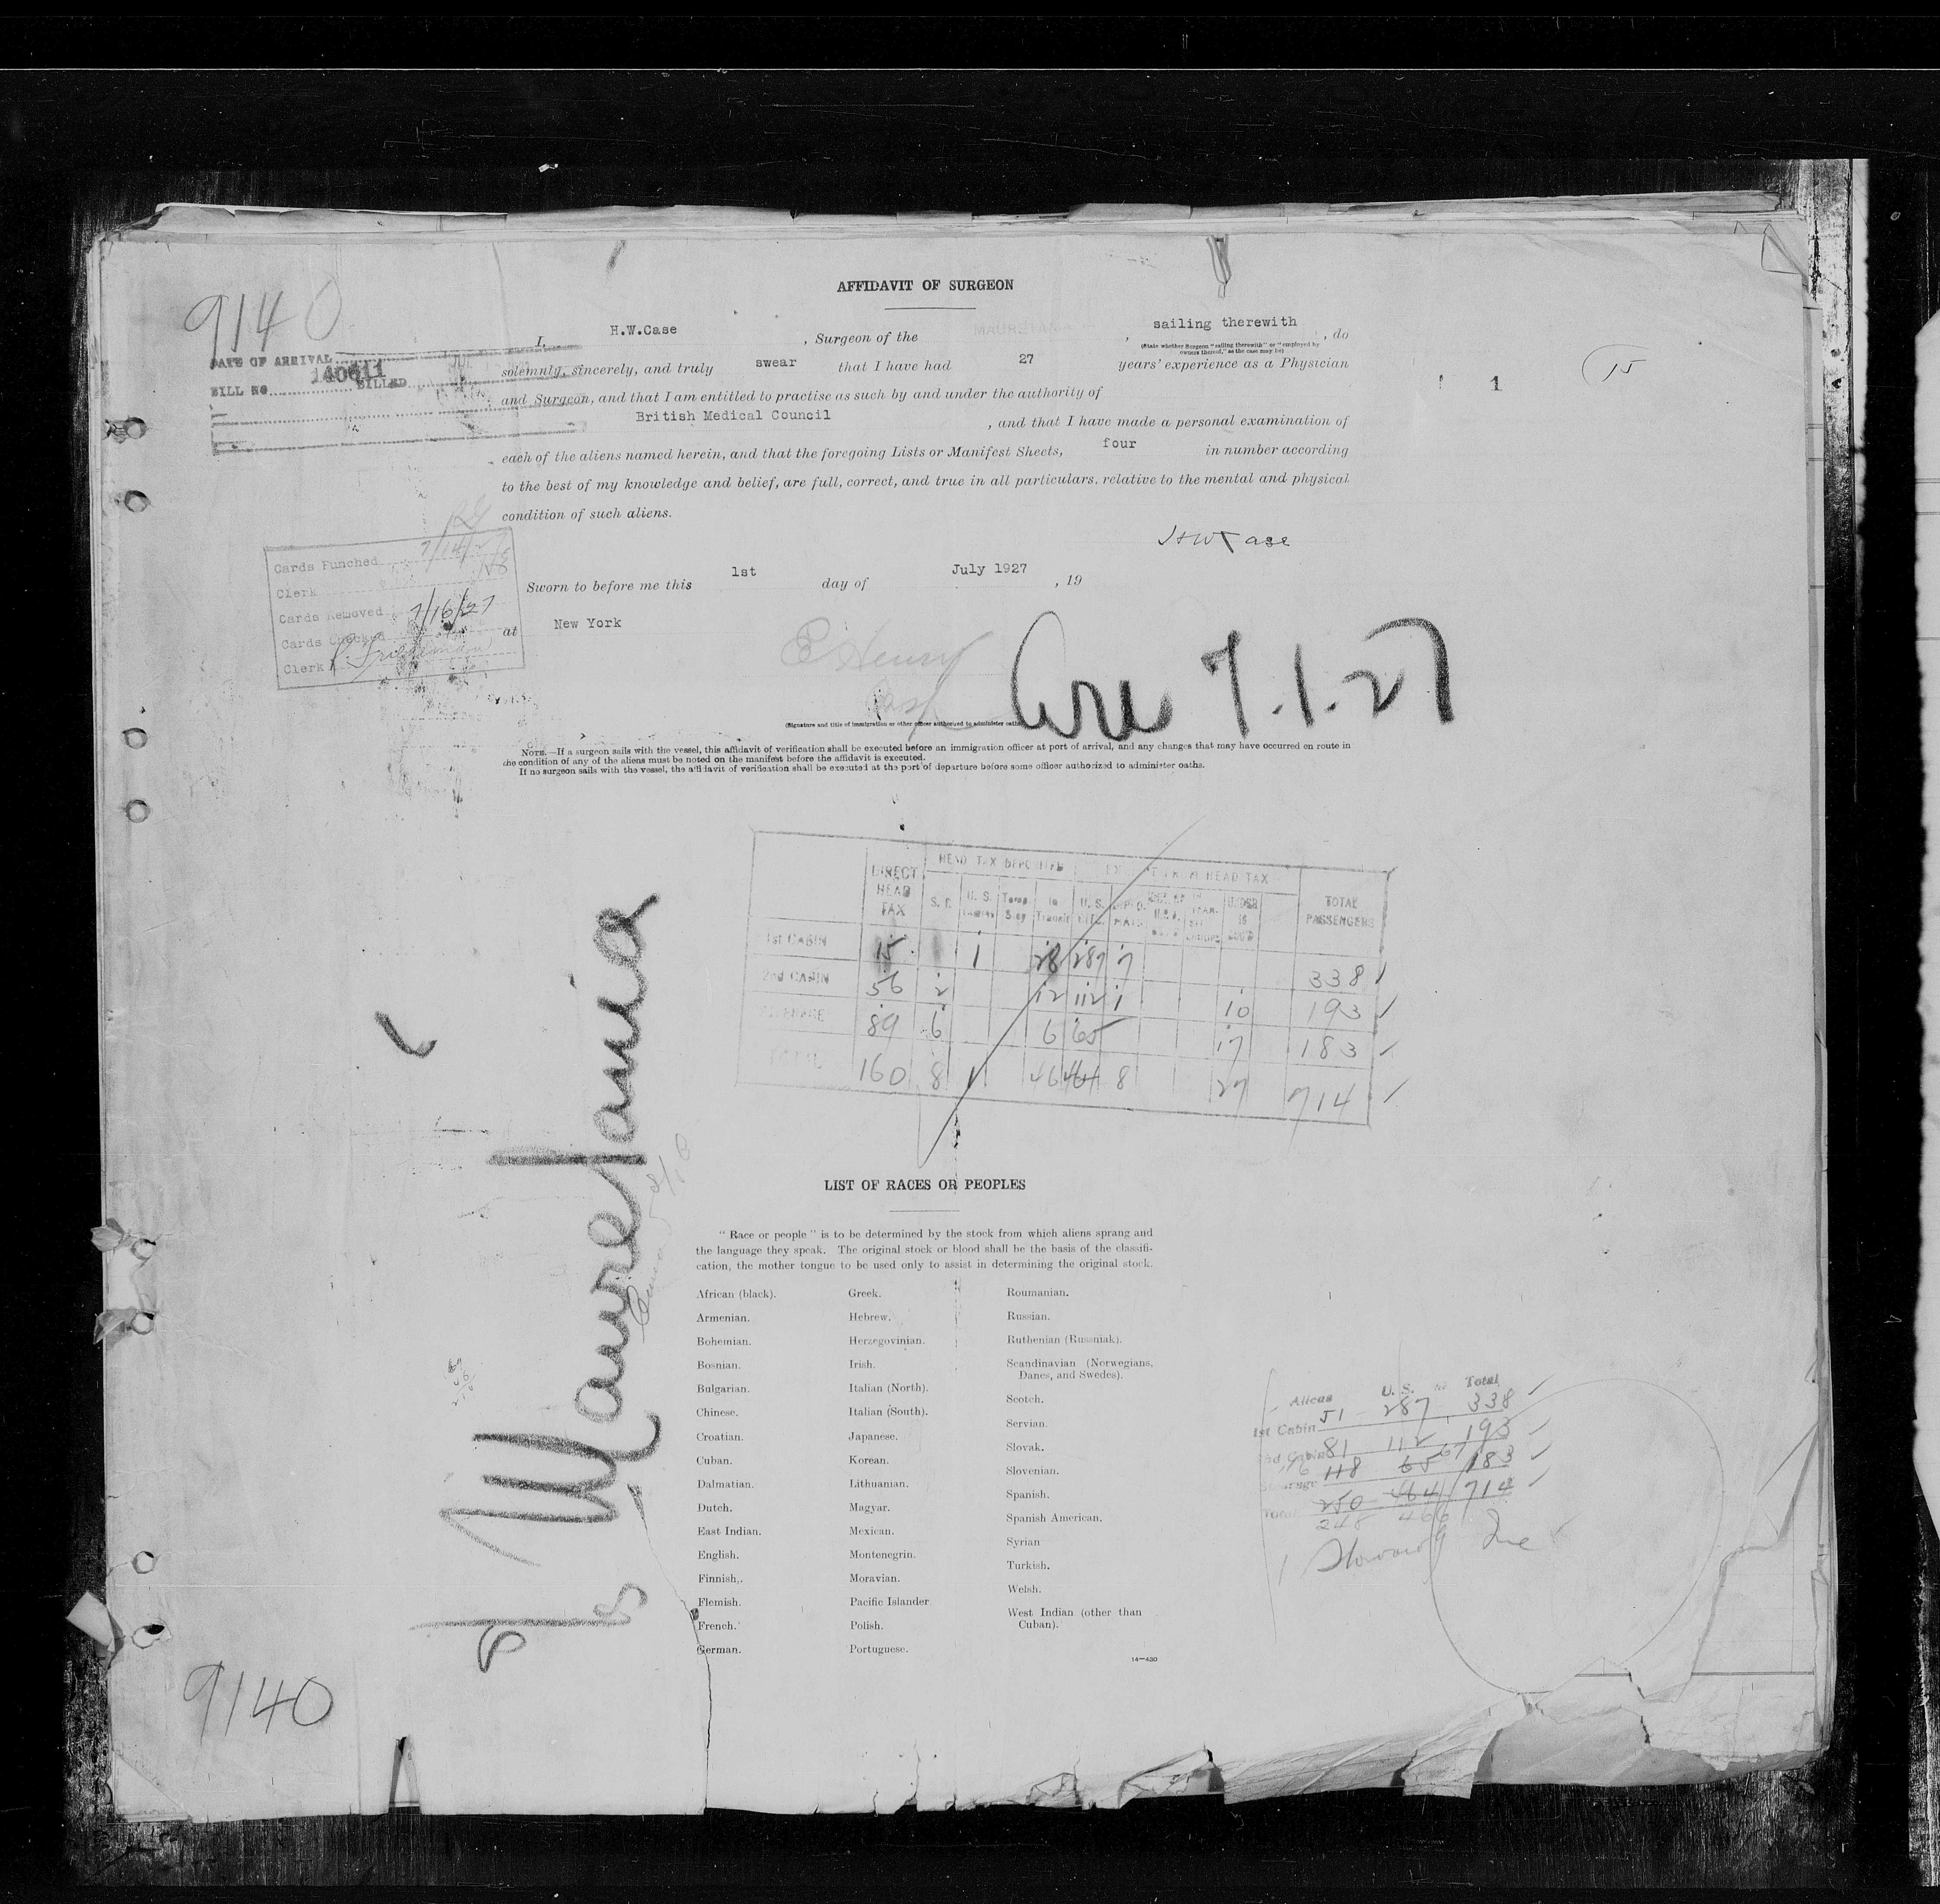 9140
AFFIDAVIT OF SURGEON
I, H.W.Case, Surgeon of the MAURETANIA, sailing therewith, do
(State whether Surgeon "sailing therewith" or "employed by owners thereof," as the case may be)
DATE OF ARRIVAL JUL
BILL NO. 140611 BILLED
solemnly, sincerely, and truly swear that I have had 27 years' experience as a Physician
and Surgeon, and that I am entitled to practise as such by and under the authority of
British Medical Council, and that I have made a personal examination of
each of the aliens named herein, and that the foregoing Lists or Manifest Sheets, four in number according
to the best of my knowledge and belief, are full, correct, and true in all particulars, relative to the mental and physical
condition of such aliens.
1
15
HWCase
Cards Punched 7/14/27
Clerk
Cards Removed 7/16/27
Cards Checked
Clerk
Sworn to before me this 1st day of July 1927, 19
at New York
E Henry
Arr 7.1.27
(Signature and title of immigration or other officer authorized to administer oaths)
NOTE.—If a surgeon sails with the vessel, this affidavit of verification shall be executed before an immigration officer at port of arrival, and any changes that may have occurred on route in
the condition of any of the aliens must be noted on the manifest before the affidavit is executed.
If no surgeon sails with the vessel, the affidavit of verification shall be executed at the port of departure before some officer authorized to administer oaths.
DIRECT HEAD TAX
HEAD TAX DEPOSITED
EXEMPT FROM HEAD TAX
TOTAL PASSENGERS
S. I. U. S. Temp Stay In Transit U. S. CITZ. DIPLO. MATS UNDER 16
1st CABIN 15 1 28 287 7 338
2nd CABIN 56 2 12 112 1 10 193
STEERAGE 89 6 6 65 17 183
TOTAL 160 8 1 46 464 8 27 714
Mauretania
LIST OF RACES OR PEOPLES
"Race or people" is to be determined by the stock from which aliens sprang and
the language they speak. The original stock or blood shall be the basis of the classifi-
cation, the mother tongue to be used only to assist in determining the original stock.
African (black).
Armenian.
Bohemian.
Bosnian.
Bulgarian.
Chinese.
Croatian.
Cuban.
Dalmatian.
Dutch.
East Indian.
English.
Finnish.
Flemish.
French.
German.
Greek.
Hebrew.
Herzegovinian.
Irish.
Italian (North).
Italian (South).
Japanese.
Korean.
Lithuanian.
Magyar.
Mexican.
Montenegrin.
Moravian.
Pacific Islander.
Polish.
Portuguese.
Roumanian.
Russian.
Ruthenian (Russniak).
Scandinavian (Norwegians,
Danes, and Swedes).
Scotch.
Servian.
Slovak.
Slovenian.
Spanish.
Spanish American.
Syrian
Turkish.
Welsh.
West Indian (other than
Cuban).
14—430
Aliens U. S. Total
1st Cabin 51 287 338
2nd Cabin 81 112 193
Steerage 118 65 67 183
Total 250 464 714
248 466
9140